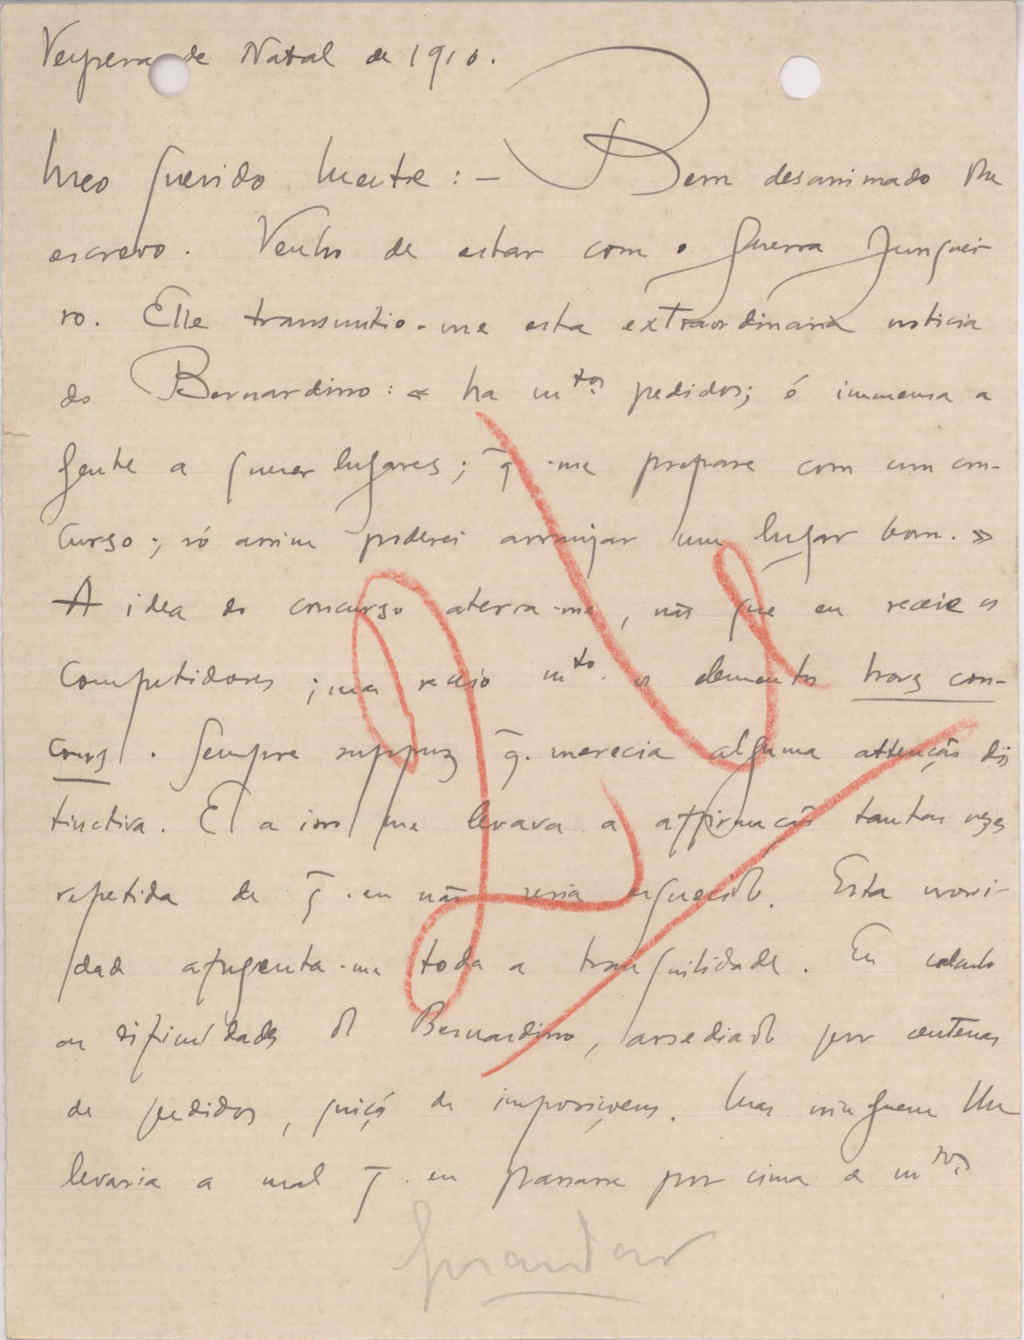 Vespera de Natal de 1910.
Meo querido Mestre: — Bem desanimado lhe
escrevo. Venho de estar com o Guerra Junquei-
ro. Elle transmitio-me esta extraordinaria noticia
do Bernardino: « ha mtos pedidos; é immensa a
gente a querer lugares; q̃ me prepare com um con-
curso; só assim poderei arranjar um lugar bom. »
A idea do concurso aterra-me, não que eu receie os
competidores; mas receio mto. os elementos hors con-
cours. Sempre suppuz q̃. merecia alguma attenção dis
tinctiva. E a isso me levava a affirmação tantas vezes
repetida de q̃. eu não seria esquecido. Esta novi-
dade afugenta-me toda a tranquilidade. Eu calculo
as dificuldades do Bernardino, assediado por centenas
de pedidos, quiçá de imposiçoens. Mas ninguem lhe
levaria a mal q̃. eu passasse por cima de mtos
Guardar